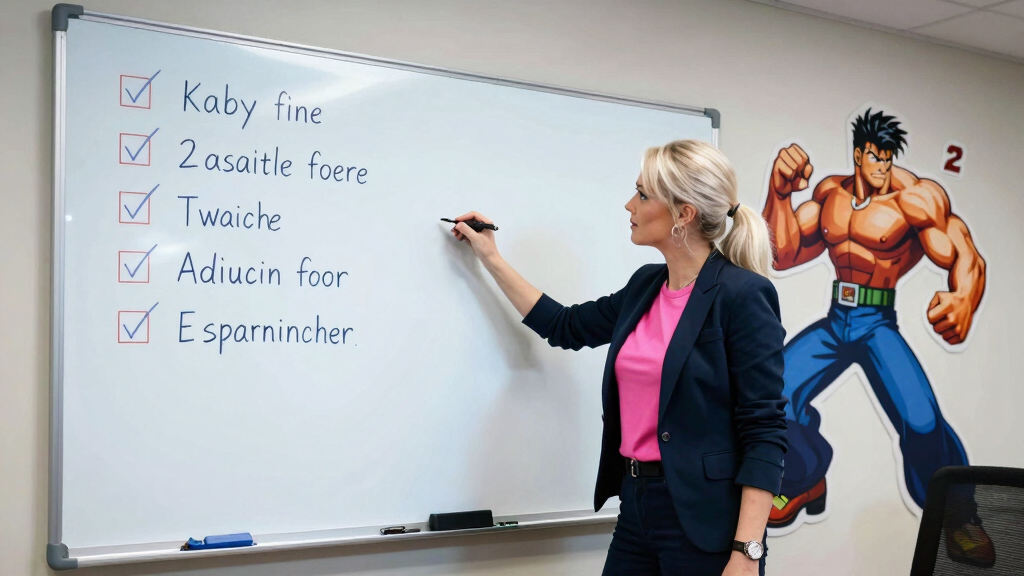 Kaby fine
2asaitle foere
Twaiche
Adiucin foor
Esparnincher.
2